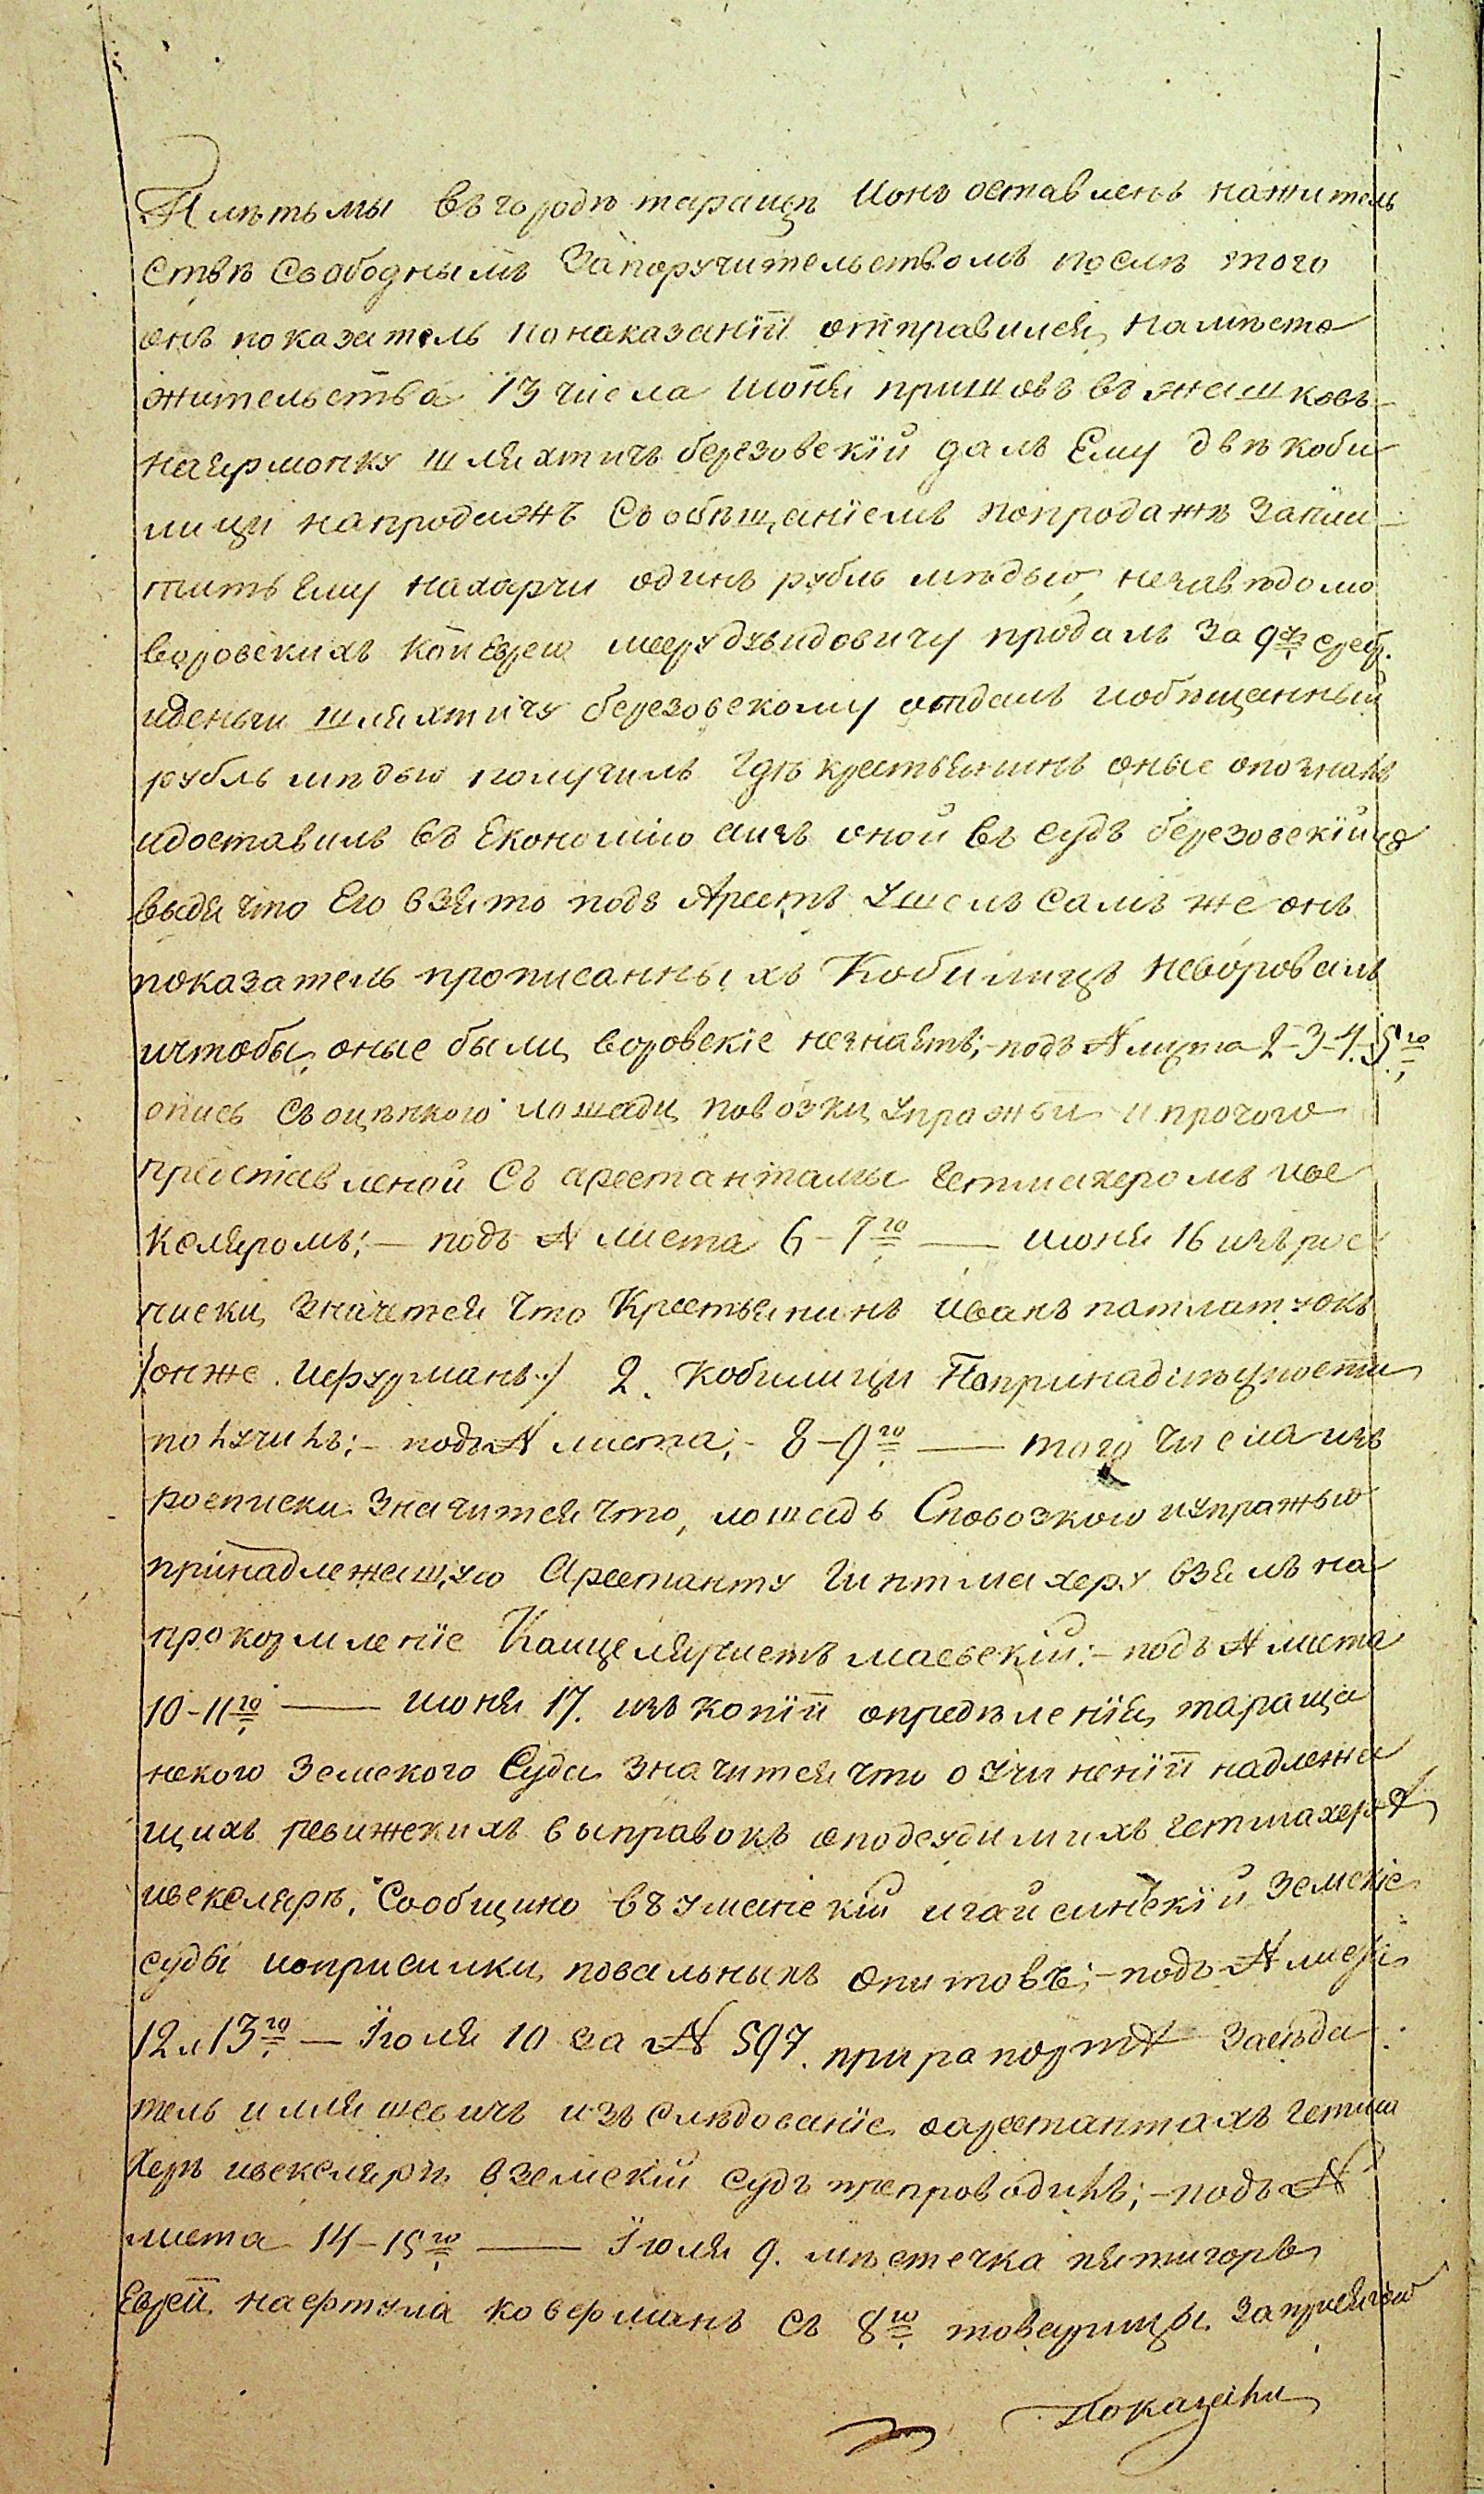 Плетьмы въ городѣ таращѣ Ионъ оставленъ нажитель
ствѣ Свободнымъ Запоручительствомъ послѣ того
онъ показатель понаказаніи отправился, намѣсто
жительства 13 числа июня пришовъ въ жашковъ
наярмонку шляхтичъ березовскій далъ Ему двѣ коби
лици напродажъ Собѣщаніемъ попродажѣ запла
тить Ему нахарчи одинъ рубль мѣдью, незавѣдомо
воровскихъ Кои Еврею мееру дувидовичу продалъ за 9 ть сереб.
иденьги шляхтичу березовскому отдалъ иобѣщанный
рубль мѣдью получилъ гдѣ крестьянинъ оные опозналъ
идоставилъ въ Економію аизъ оной въ судъ березовскій же
выдя что Его взято подъ Арестъ ушелъ самъ же онъ
показатель прописанныхъ Кобилицъ неворовалъ
ичтобы, оные были, воровскіе незнаетъ;- подъ № листа 2-3-4-5го
опись съоцѣнкою лошади, повозки, упражы и прочого
представленой Съ арестантамы гетмахеромъ иве
ксляромъ;- подъ № листа 6-7го — июня 16 изърос
писки, значится что Крестьянинъ иванъ патлатюкъ
/онже. ифурманъ./ 2. Кобилици Попринадлѣжности
получилъ;- подъ № листа;- 8-9го — того числа изъ
росписки значится что, лошадь Сповозкою иупражью
принадлежащую Арестанту Гитмахеру взялъ на
прокормленіе Канцеляристъ маевскій;- подъ № листа
10-11го — июня 17. изъ копіи опредѣленія, тараща
нского Земского Суда значится что о учиненіи надлежа
щихъ ревижскихъ выправокъ оподсудимихъ гетмахерѣ
ивекслярѣ, Сообщино въ уманскій игайсинскій Земскіе
суды иоприсилки, повальныхъ опитовъ;- подъ № листа
12 и 13го — Іюля 10 за № 597. при рапортѣ Засѣда
тель имляшевичъ изъслѣдованіе, оарестантахъ гетма
херѣ ивекслярѣ вземскій судъ препроводилъ;- подъ №
листа 14-15го — Іюля 9. мѣстечка пятигоръ
Еврей нафтула коверманъ съ 8ю товарищы. Заприсягою
Показали